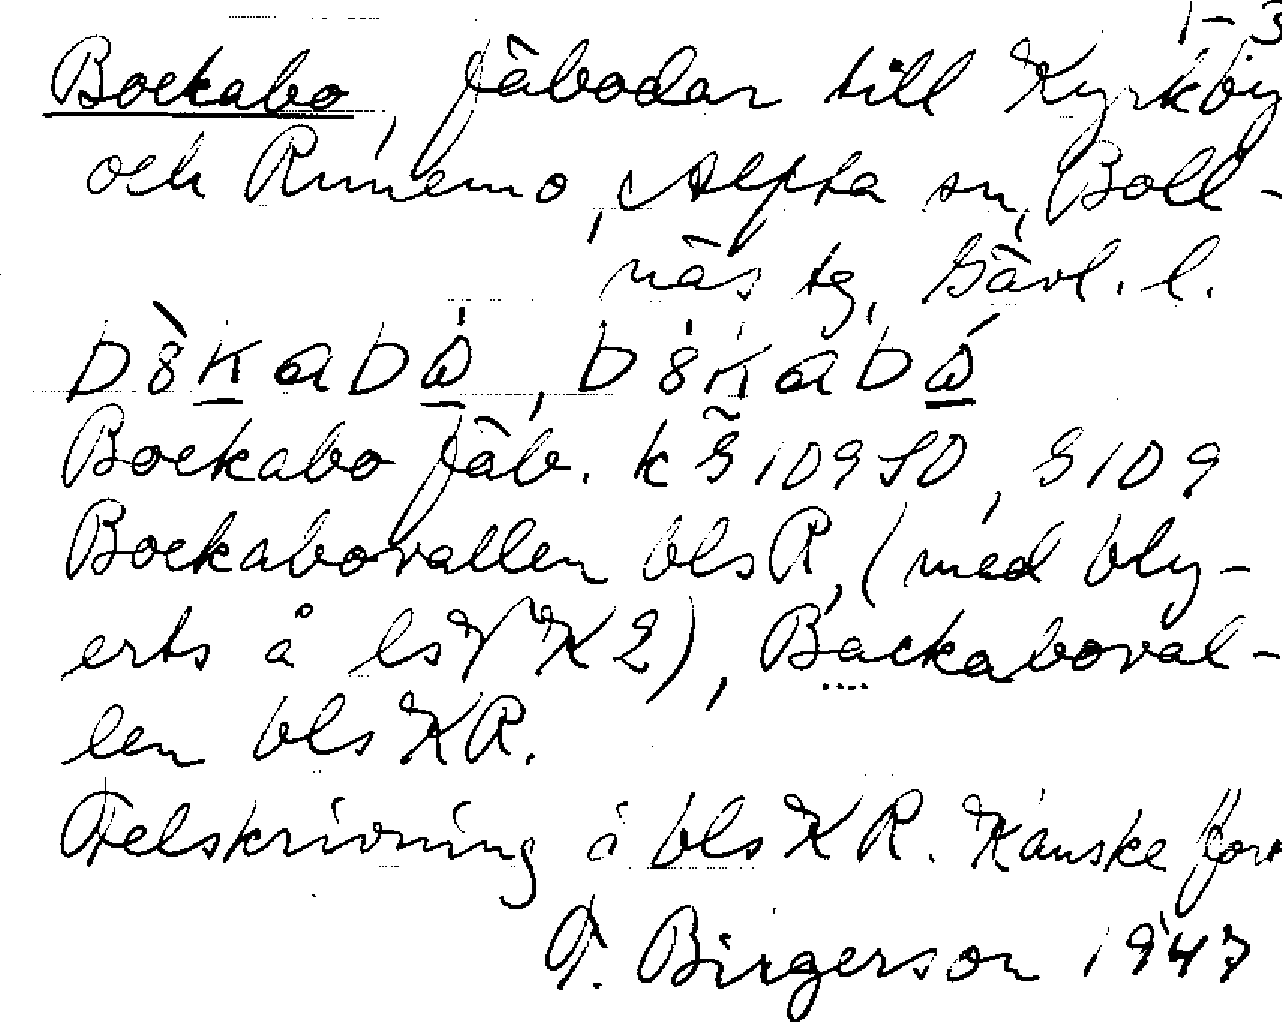 1-3
Bockabo, fäbodar till Kyrkby
och Runemo, Alfta sn, Boll-
näs tg, Gävl. l.
Bockabo fäb. k G 109 SO, G 109
Bockabovallen bls R, (med bly-
erts å ls V K 2), Backaboval-
len bls KR.
Felskrivning å bls KR. Kanske
Birgerson 1947